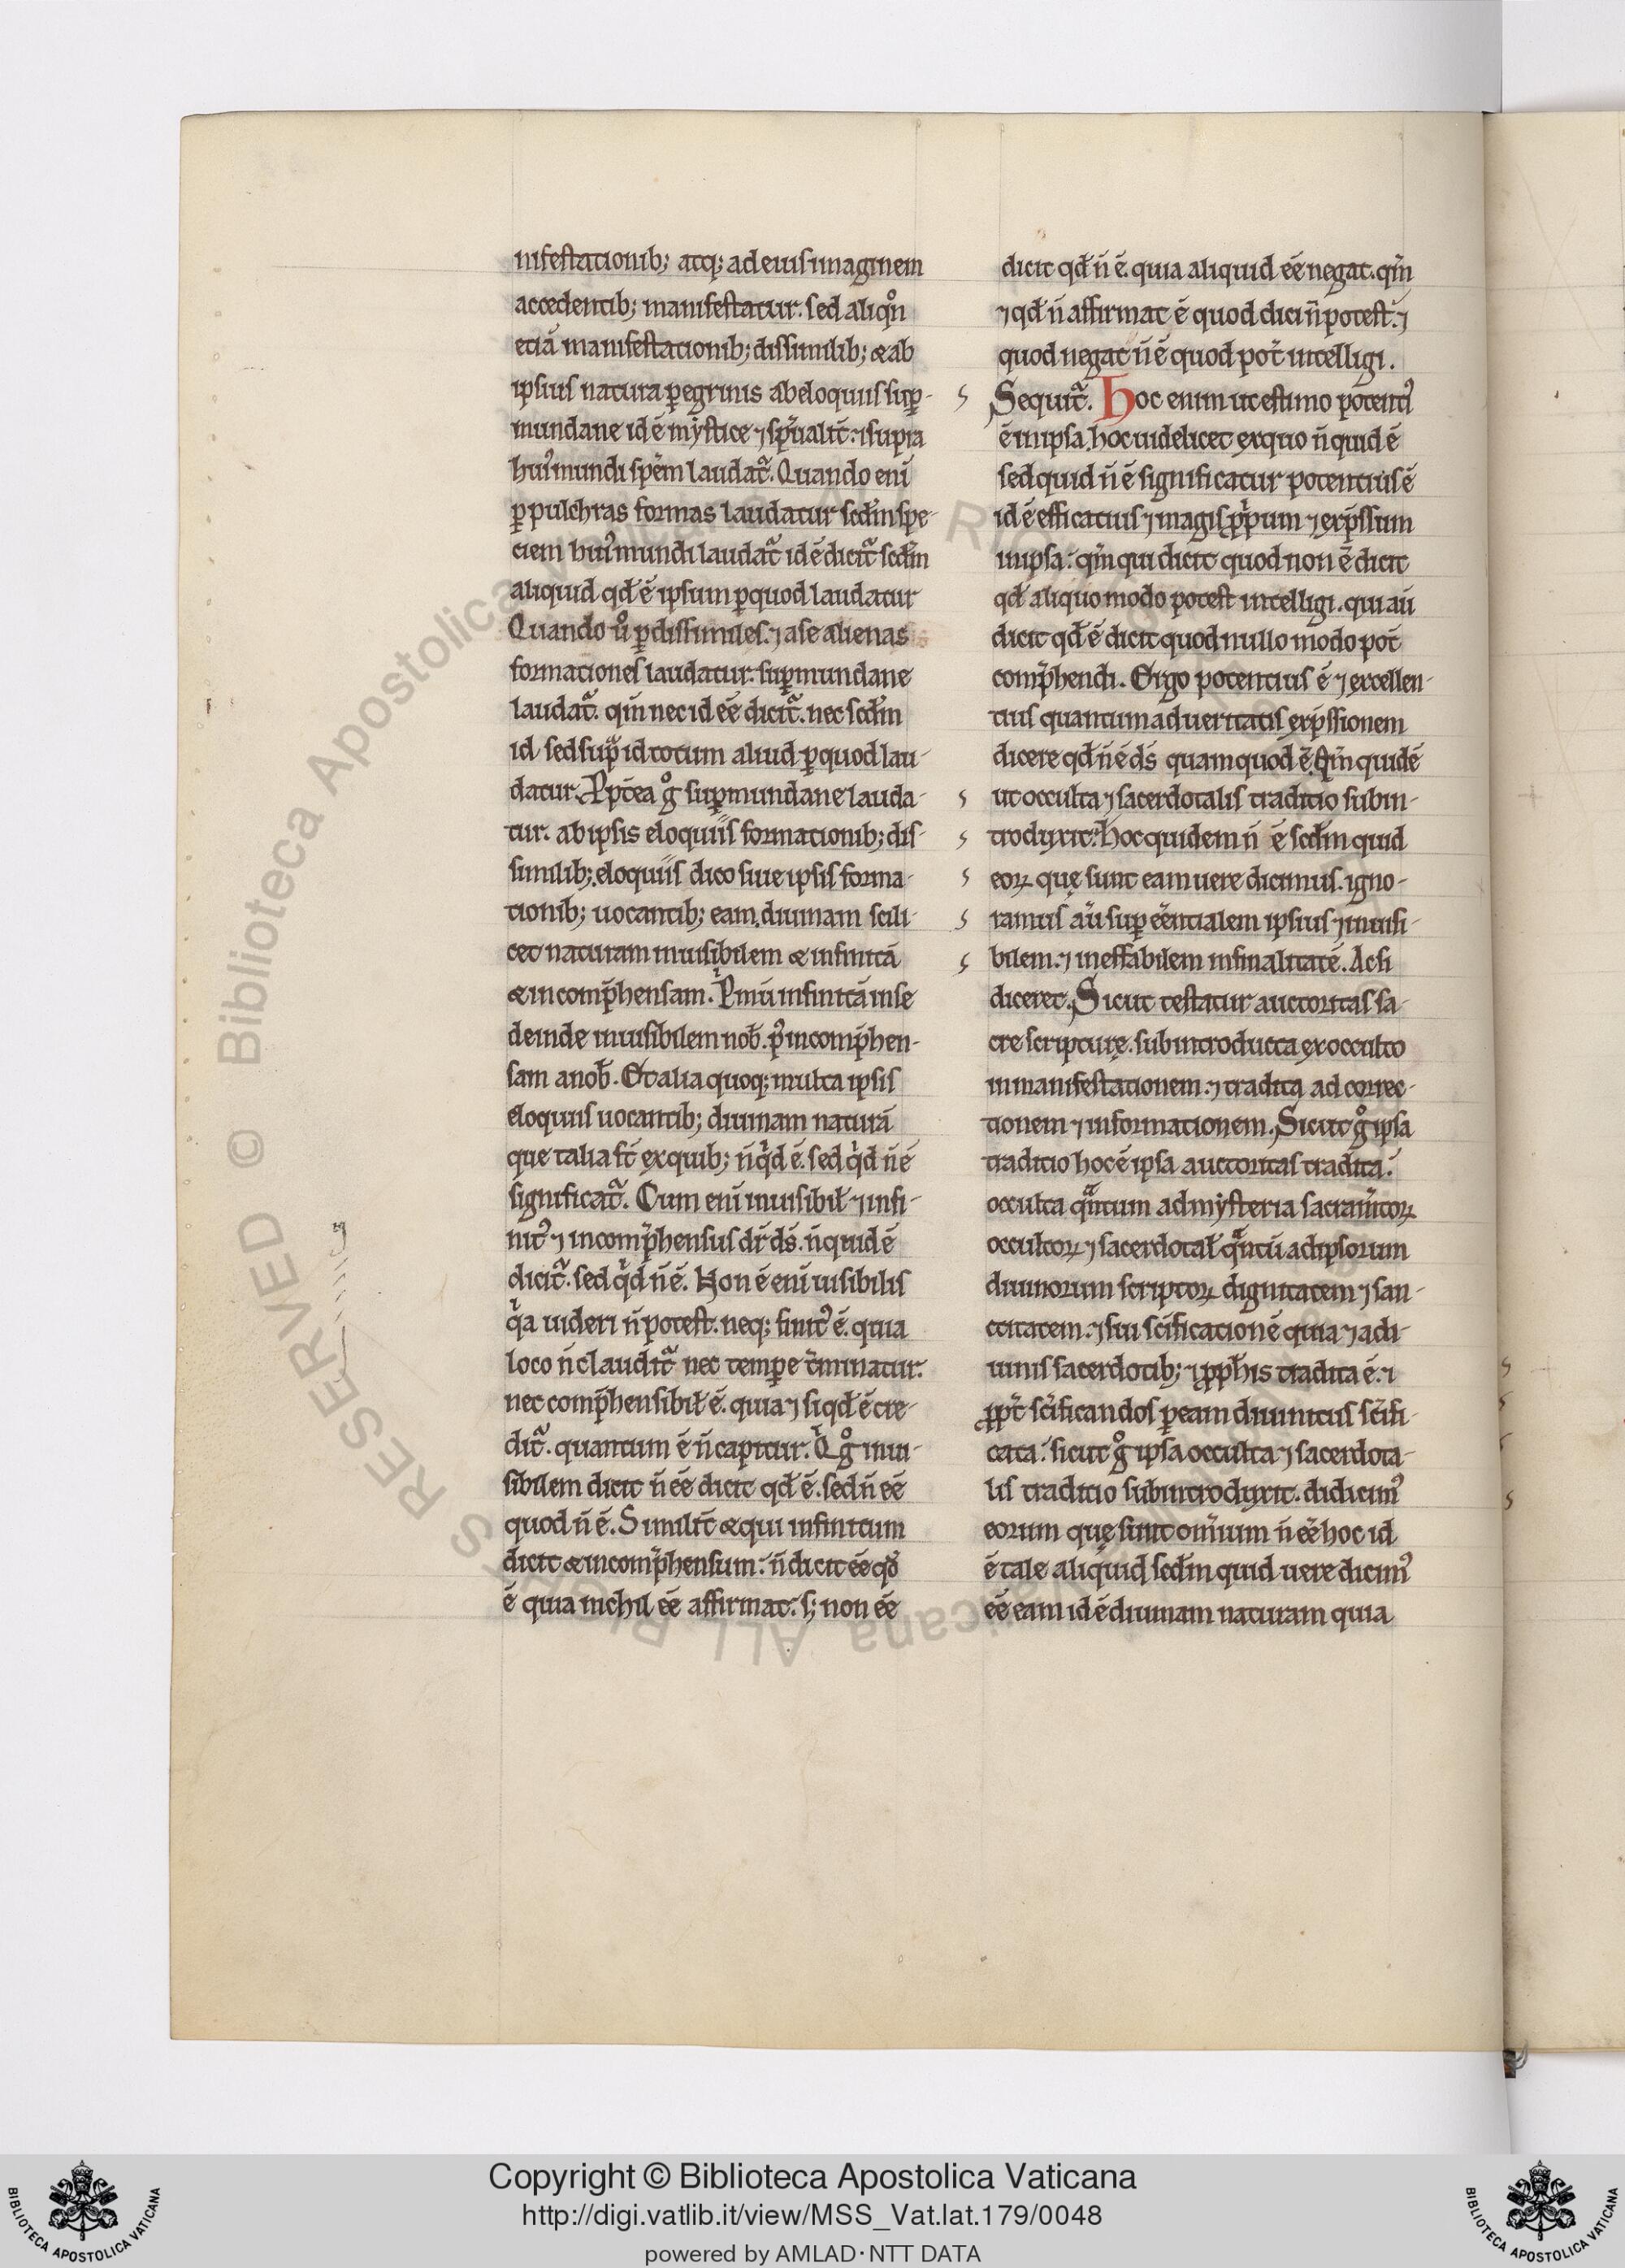 nifestationib; atq; ad eius imaginem
accedentib; manifestatur. sed aliqn̊
etiā manifestationib; dissimilib; & ab
ipsius natura p̱egrinis ab eloquiis sup̱-
mundane id ē mystice ⁊ sp̄ualit̄. ⁊ supra
hui᾽ mundi spēm laudat̃. Quando eni
p̱ pulchras formas laudatur scd̄m spe-
ciem hui᾽ mundi laudat̃ id ē dicit̃ scd̄m
aliquid qđ ē ipsum p̱ quod laudatur
Quando ů p̱ dissimiles. ⁊ a se alienas
formationes laudatur. sup̱mundane
laudat̃. qm̄ nec id eē dicit̃. nec scd̄m
id sed sup̱ id totum aliud p̱ quod lau-
datur. Ꝓpt̄ea g̊ sup̱mundane lauda-
tur. ab ipsis eloquiis formationib; dis-
similib; eloquiis dico siue ipsis forma-
tionib; uocantib; eam. diuinam scili-
cet naturam inuisibilem & infinitā
& incomp̄hensam. Pͥmū infinitā in se
deinde inuisibilem nob̄. p᾽ incomp̄hen-
sam a nob̄. Et alia quoq; multa ipsis
eloquiis uocantib; diuinam naturā
que talia st̄ ex quib; n̄ qͥd ē. sed qͥd n̄ ē
significat̃. Cum eni inuisibil̄ ⁊ infi-
nit᾽ ⁊ incomp̄hensus dr̄ ds̄. n̄ quid ē
dicit̃. sed qͥd n̄ ē. Non ē eni uisibilis
qͥa uideri n̄ potest. neq; finit᾽ ē. quia
loco n̄ claudit̃ nec temp̱e t̄minatur.
nec comp̄hensibil̄ ē. quia ⁊ si qđ ē cre-
dit̃. quantum ē n̄ capitur. Qͥ g̊ inui-
sibilem dicit n̄ eē dicit qđ ē. sed n̄ eē
quod n̄ ē. Similit̄ & qui infinitum
dicit & incomp̄hensum. n̄ dicit eē qđ
ē quia nichil eē affirmat. s; non eē
dicit qđ n̄ ē. quia aliquid eē negat. qm̄
⁊ qđ n̄ affirmat ē quod dici n̄ potest. ⁊
quod negat n̄ ē quod pot̄ intelligi.
Sequit̃. Hoc enim ut estimo potenti᾽
ē in ipsa. hoc uidelicet ex quo n̄ quid ē
sed quid n̄ ē significatur potentius ē
id ē efficatius ⁊ magis ꝓpͥum ⁊ exp̄ssum
in ipsa. qm̄ qui dicit quod non ē dicit
qđ aliquo modo potest intelligi. qui aū
dicit qđ ē dicit quod nullo modo pot̄
comp̄hendi. Ergo potentius ē ⁊ excellen-
tius quantum ad ueritatis exp̄ssionem
dicere qđ n̄ ē ds̄ quam quod ē. Qm̄ quidē
ut occulta ⁊ sacerdotalis traditio subin-
troduxit. hoc quidem n̄ ē scd̄m quid
eoꝝ que sunt eam uere dicimus. igno-
ramus aū sup̱ eēntialem ipsius ⁊ inuisi-
bilem. ⁊ ineffabilem infinalitatē. Ac si
diceret. Sicut testatur auctoritas sa-
cre scripture. subintroducta ex occulto
in manifestationem. ⁊ tradita ad correc-
tionem ⁊ informationem. Sicut g̊ ipsa
traditio hoc ē ipsa auctoritas tradita.
occulta qͣntum ad mysteria sacram̄toꝝ
occultoꝝ ⁊ sacerdotal̄ qͣntū ad ipsorum
diuinorum scriptoꝝ dignitatem ⁊ san-
ctitatem. ⁊ sui sc̄ificationē quia ⁊ a di-
uinis sacerdotib; ⁊ ꝓph̄is tradita ē. ⁊
ꝓpt̄ sc̄ificandos p̱ eam diuinitus sc̄ifi-
cata. sicut g̊ ipsa occulta ⁊ sacerdota-
lis traditio subintroduxit. didicim᾽
eorum que sunt omnium n̄ eē hoc id
ē tale aliquid scd̄m quid uere dicim᾽
eē eam id ē diuinam naturam quia
Copyright © Biblioteca Apostolica Vaticana
http://digi.vatlib.it/view/MSS_Vat.lat.179/0048
powered by AMLAD·NTT DATA
BIBLIOTECA APOSTOLICA VATICANA
BIBLIOTECA APOSTOLICA VATICANA